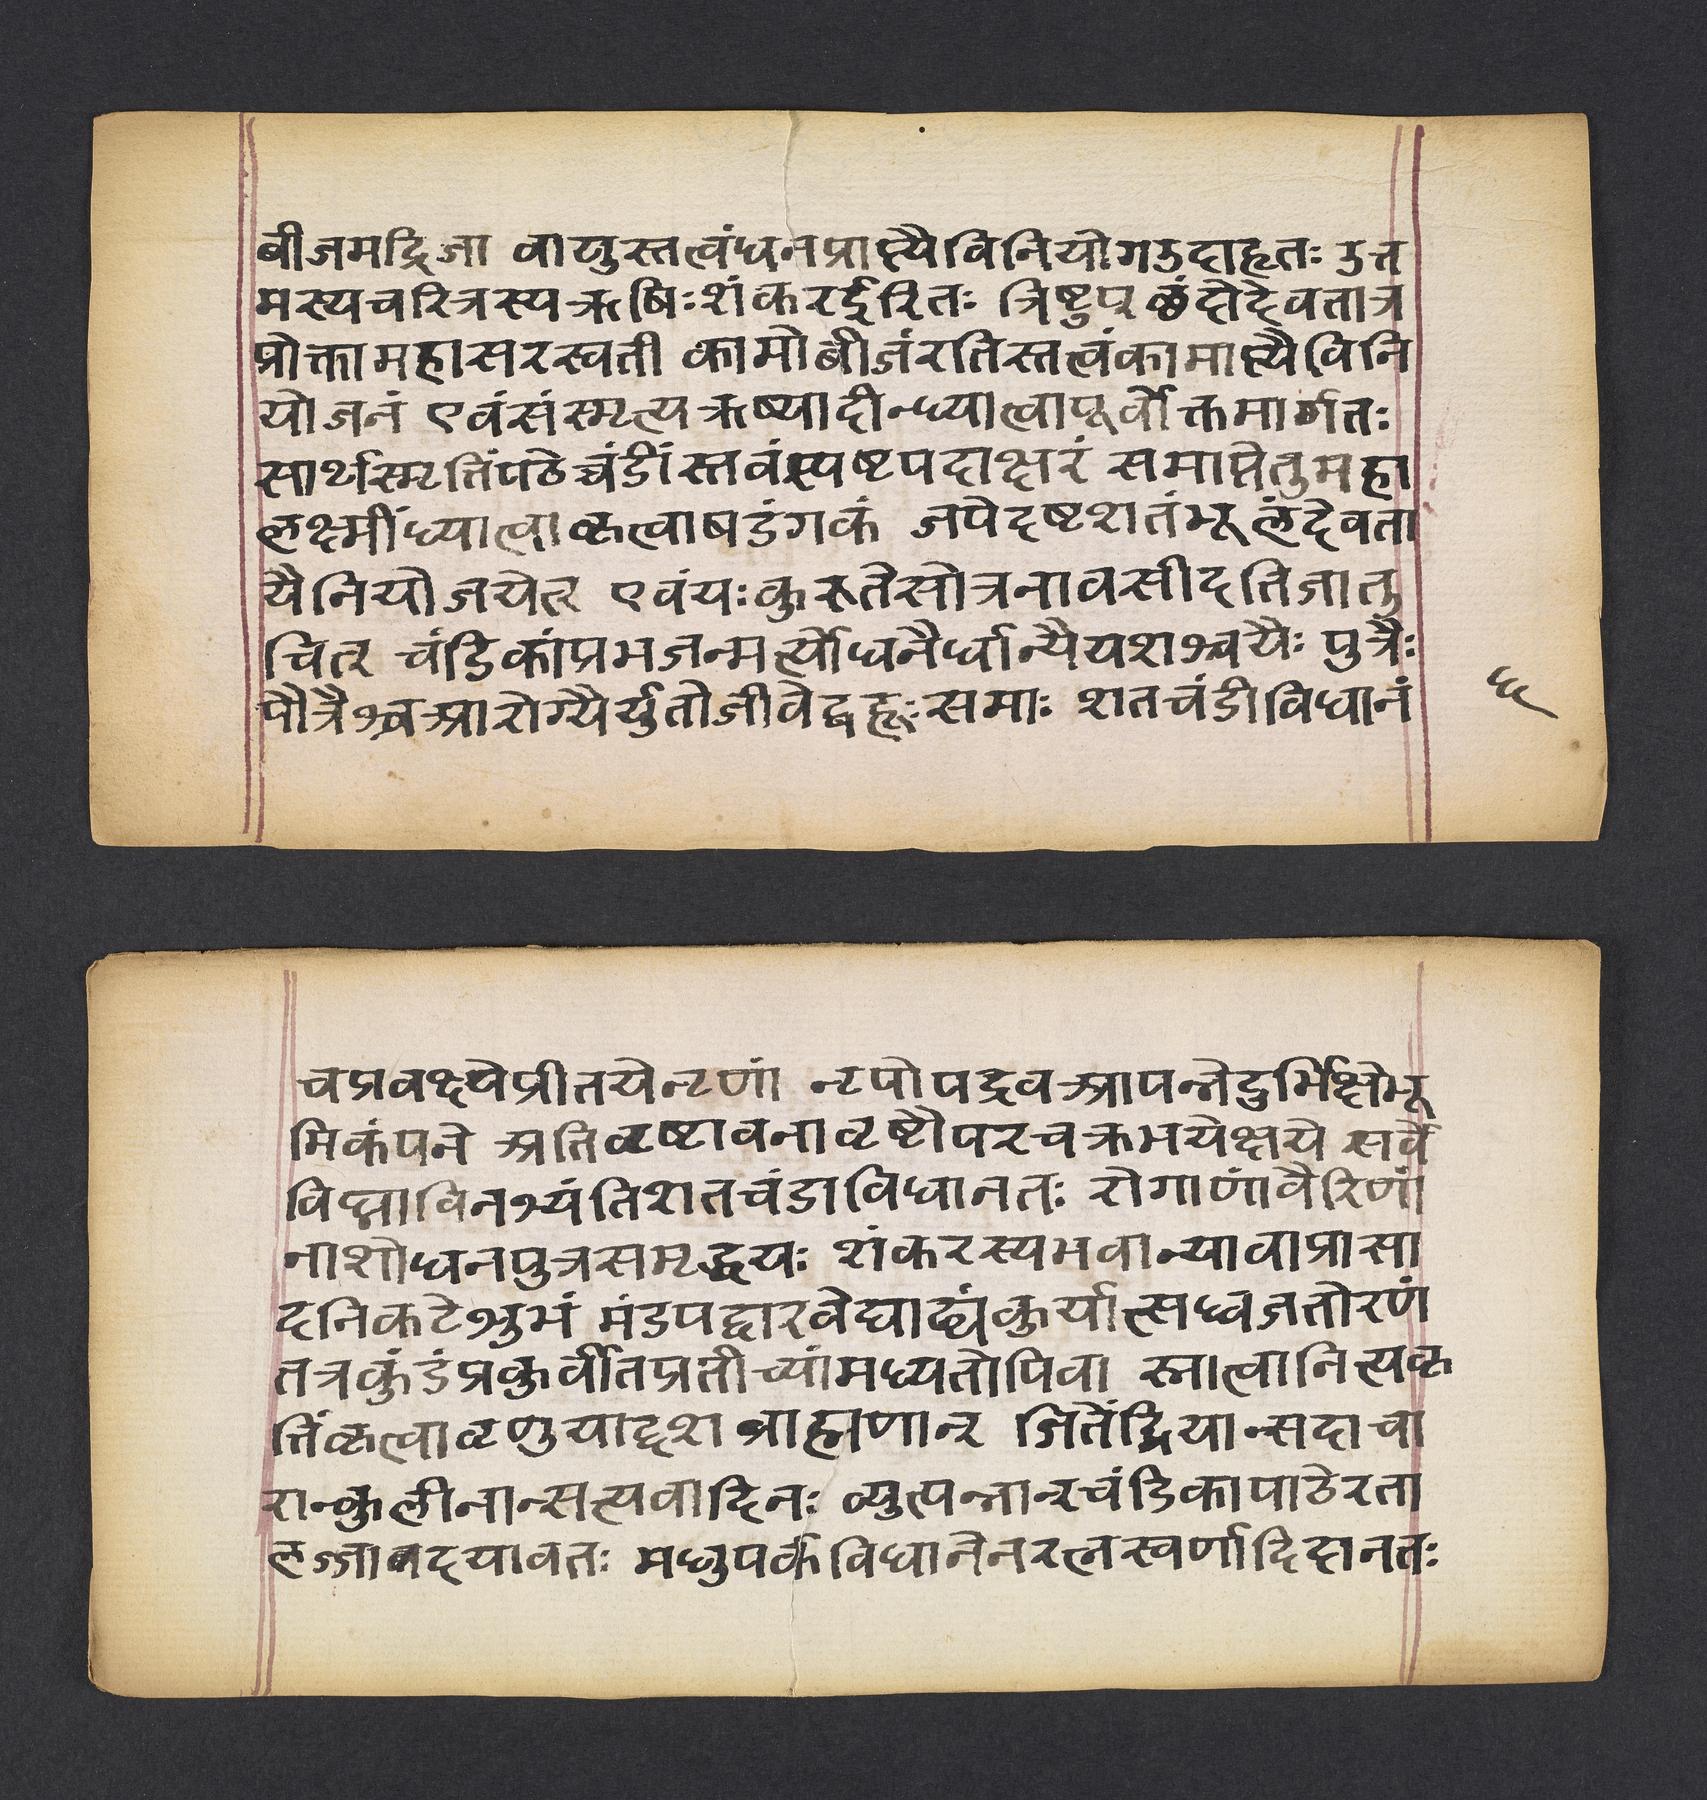 बीजमद्रिजा वायुस्तत्वंधनप्राप्त्यैविनियोगउदाहृतः उत्त
मस्यचरित्रस्यऋषिःशंकरईरितः त्रिष्टुप् छंदोदेवतात्र
प्रोक्तामहासरस्वती कामोबीजंरतिस्तत्वंकामाप्त्यैविनि
योजनं एवंसंस्मृत्यऋष्यादीन्ध्यात्वापूर्वोक्तमार्गतः
सार्थस्मृतिंपठेच्चंडींस्तवंस्पष्टपदाक्षरं समाप्तेतुमहा
लक्ष्मींध्यात्वाकृत्वाषडंगकं जपेदष्टशतंमूलंदेवता
यैनियोजयेत् एवंयःकुरुतेसोत्रनावसीदतिजातु
चित् चंडिकांप्रभजन्मर्त्योधनैर्धान्यैयशश्चयैः पुत्रैः
पौत्रैश्चआरोग्यैर्युतोजीवेद्बहूःसमाः शतचंडीविधानं
६
चप्रवक्ष्येप्रीतयेनृणां नृपोपद्रवआपन्नेदुर्भिक्षेभू
मिकंपने अतिवृष्टावनावृष्टौपरचक्रभयेक्षये सर्वे
विघ्नाविनश्यंतिशतचंडाविधानतः रोगाणांवैरिणां
नाशोधनपुत्रसमृद्धयः शंकरस्यभवान्यावाप्रासा
दनिकटेशुभं मंडपद्वारवेद्याढ्यंकुर्यात्सध्वजतोरणं
तत्रकुंडंप्रकुर्वीतप्रतीच्यांमध्यतोपिवा स्नात्वानित्यकृ
तिंकृत्वावृणुयाद्दशब्राह्मणान् जितेंद्रियान्सदाचा
रान्कुलीनान्सत्यवादिनः व्युत्पन्नान्चंडिकापाठेरता
लज्जावद्यावतः मधुपर्कविधानेनरत्नस्वर्णादिदानतः